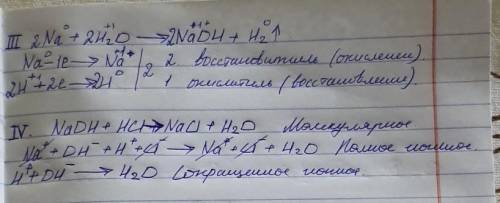 III 2Na⁰ + 2H₂⁺¹O ⟶ 2Na⁺¹OH + H₂⁰↑
Na⁰ - 1e ⟶ Na⁺¹ | 2 | 2 восстановитель (окисление).
2H⁺¹ + 2e ⟶ 2H⁰ | 1 окислитель (восстановление).
IV. NaOH + HCl ⟶ NaCl + H₂O Молекулярное
Na⁺ + OH⁻ + H⁺ + Cl⁻ ⟶ Na⁺ + Cl⁻ + H₂O Полное ионное.
H⁺ + OH⁻ ⟶ H₂O Сокращенное ионное.